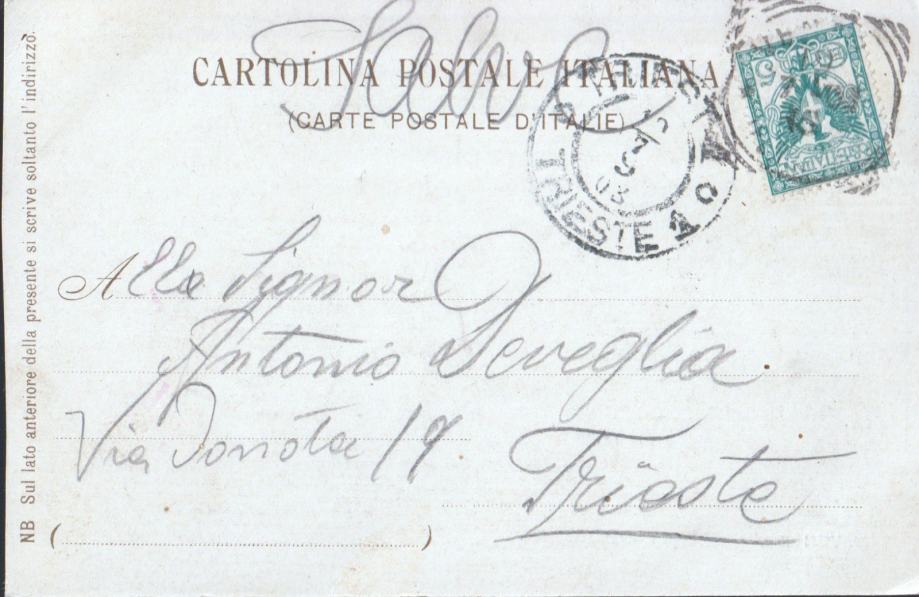 Salve
CARTOLINA POSTALE ITALIANA
(CARTE POSTALE D'ITALIE)
TRIESTE
TRIESTE 1
03
5
NB Sul lato anteriore della presente si scrive soltanto l'indirizzo.
Alla Signor
Antonio Deveglia
Via Donota 17
Trieste
( )